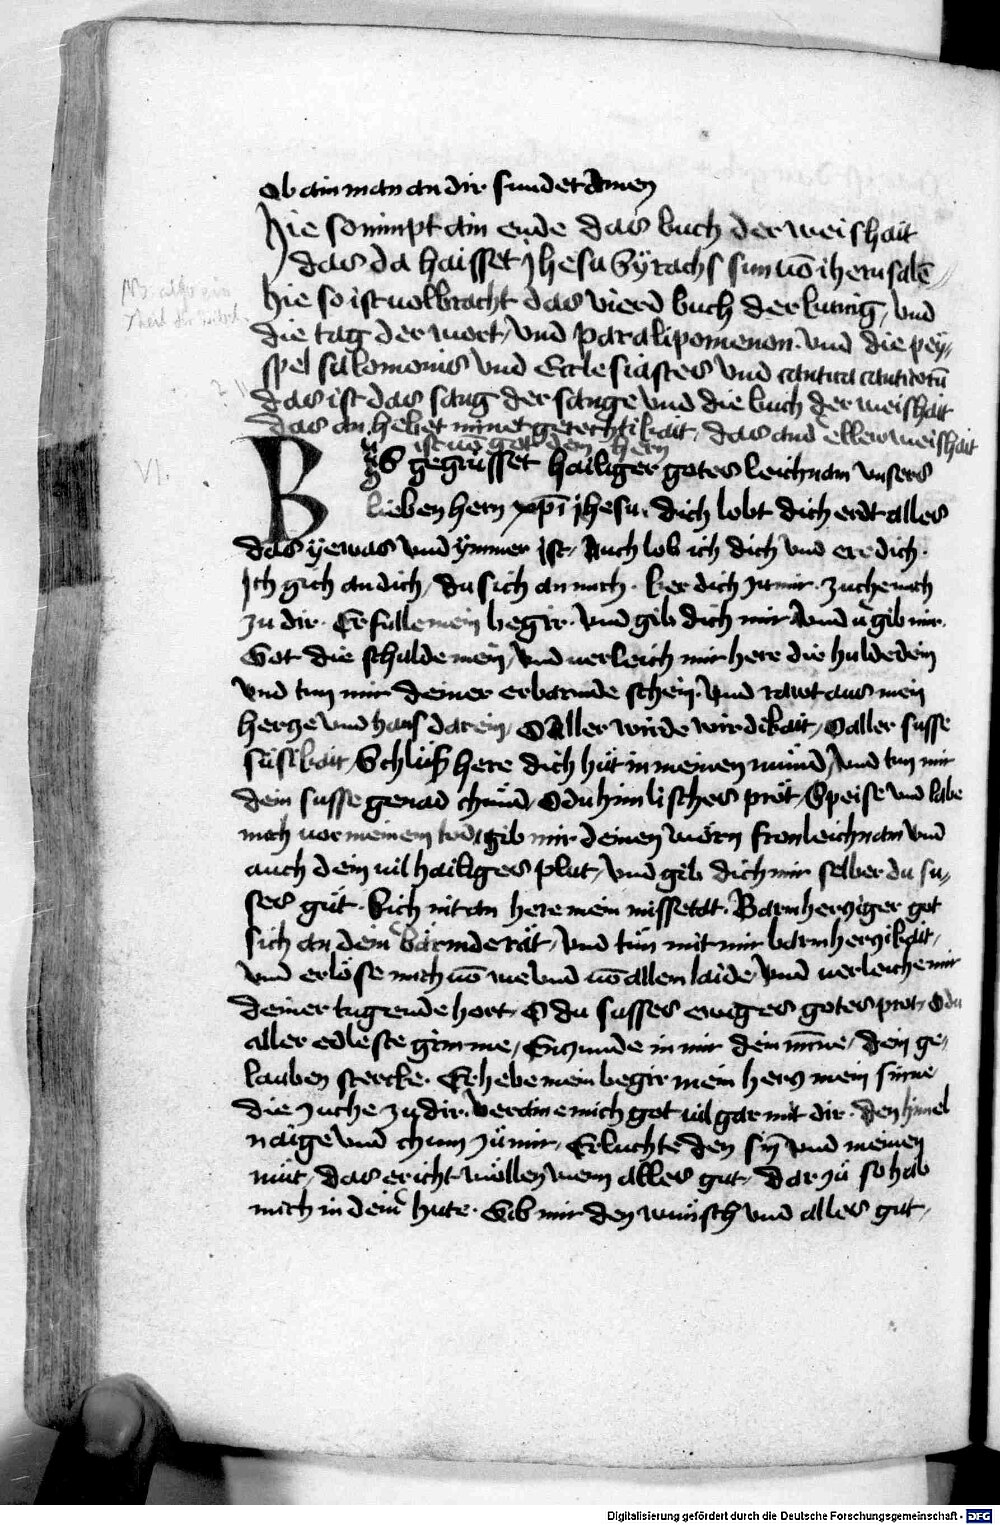 ob ain man an dir sundet Amen
Hie so nimpt ain ende das buch der weishait
das da haisset Jhesu Syrachs sun vō iherusalē
hie so ist volbracht das vierd buch der kunig, vnd
die tag der wort, vnd paralipomenon. vnd die pey„
spel salomonis vnd Ecclesiastes vnd cantica canticorū
das ist das sang der sange vnd die buch der weishait
das an hebet minnet gerechtikait, das and ellew weishait
ist vō got dem hern
VI.
BJs gegrüsset hailiger gotes leichnam vnsers
lieben hern xpī jhesu. dich lobt dich erdt alles
das ÿe was vnd ÿmmer ist, Auch lob ich dich vnd ere dich.
Ich gich an dich, du sich an mich. ker dich zu mir. zuche mich
zu dir. Erfulle mein begir. vnd gib dich mir vnd v̊gib mir.
Got die schulde mein, vnd verleich mir here die hulde dein
vnd tun mir deiner erbarmde schein. vnd rawt aus mein
hercze vnd haus darein, O Aller wirde wirdikait, O aller susse
süssikait, Schlüß here dich hüt in meinen mund, vnd tun mir
dein susse genad chund, O du himlisches prot, Speise vnd labe
mich vor meinem tod, gib mir deinenworn fronleichnam vnd
auch dein vil hailiges plut, vnd gib dich mir selber du su„
ses güt. Sich nit an here mein missetat. Barmhercziger got
sich an dein barmde rät, vnd tün mit mir barmherczikait,
vnd erlöse mich vō we vnd vō allem laide, vnd verleiche mir
deiner tugende hort, O du susses ewiges gotes prot, O du
aller edleste gimme, Enczunde in mir dein mīne, dein ge„
lauben stercke. Erhebe mein begir mein hercz mein sinne
die zuche zu dir. veraine mich got vil gar mit dir. den himel
naige vnd chum zu mir, Erluchte den sÿn vnd meinen
müt, das er icht wöllen wenn alles gut, dar zü so hab
mich in deiner hute. Gib mir den wunsch vnd alles gut,
Digitalisierung gefördert durch die Deutsche Forschungsgemeinschaft - DFG